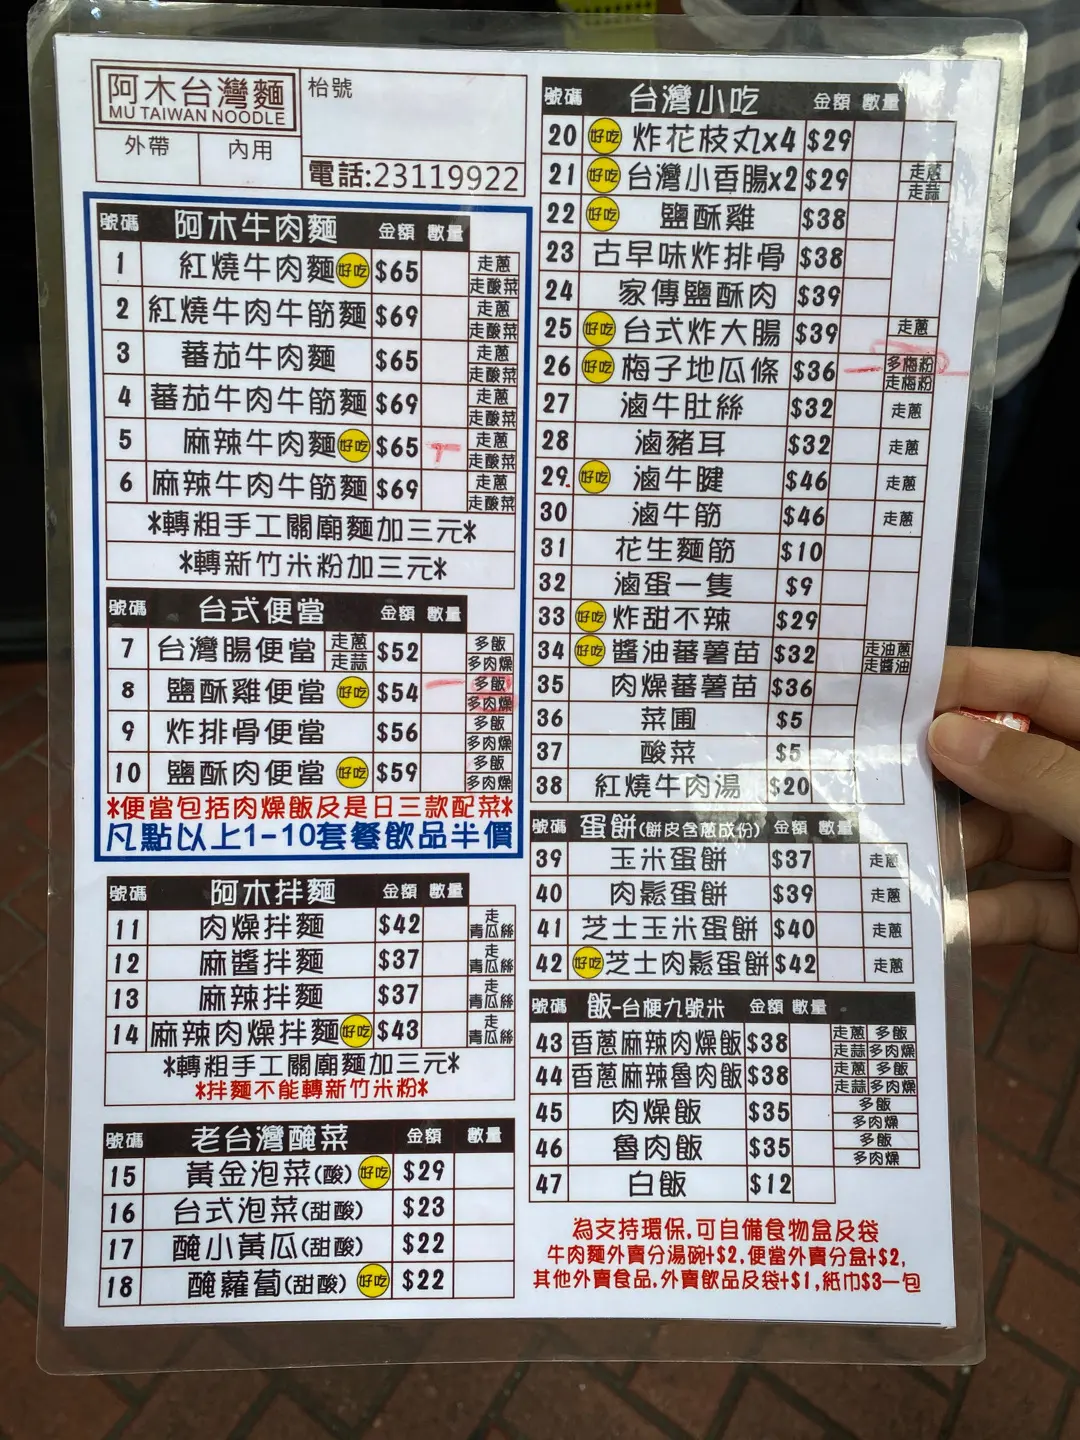 阿木台灣麵
MU TAIWAN NOODLE
枱號
外帶 內用
電話:23119922
號碼 阿木牛肉麵 金額 數量
1 紅燒牛肉麵 好吃 $65 走蔥 走酸菜
2 紅燒牛肉牛筋麵 $69 走蔥 走酸菜
3 蕃茄牛肉麵 $65 走蔥 走酸菜
4 蕃茄牛肉牛筋麵 $69 走蔥 走酸菜
5 麻辣牛肉麵 好吃 $65 走蔥 走酸菜
6 麻辣牛肉牛筋麵 $69 走蔥 走酸菜
*轉粗手工關廟麵加三元*
*轉新竹米粉加三元*
號碼 台式便當 金額 數量
7 台灣腸便當 走蔥 走蒜 $52 多飯 多肉燥
8 鹽酥雞便當 好吃 $54 多飯 多肉燥
9 炸排骨便當 $56 多飯 多肉燥
10 鹽酥肉便當 好吃 $59 多飯 多肉燥
*便當包括肉燥飯及是日三款配菜*
凡點以上1-10套餐飲品半價
號碼 阿木拌麵 金額 數量
11 肉燥拌麵 $42 走青瓜絲
12 麻醬拌麵 $37 走青瓜絲
13 麻辣拌麵 $37 走青瓜絲
14 麻辣肉燥拌麵 好吃 $43 走青瓜絲
*轉粗手工關廟麵加三元*
*拌麵不能轉新竹米粉*
號碼 老台灣醃菜 金額 數量
15 黃金泡菜(酸) 好吃 $29
16 台式泡菜(甜酸) $23
17 醃小黃瓜(甜酸) $22
18 醃蘿蔔(甜酸) 好吃 $22
號碼 台灣小吃 金額 數量
20 好吃 炸花枝丸x4 $29
21 好吃 台灣小香腸x2 $29 走蔥 走蒜
22 好吃 鹽酥雞 $38
23 古早味炸排骨 $38
24 家傳鹽酥肉 $39
25 好吃 台式炸大腸 $39 走蔥
26 好吃 梅子地瓜條 $36 多梅粉 走梅粉
27 滷牛肚絲 $32 走蔥
28 滷豬耳 $32 走蔥
29 好吃 滷牛腱 $46 走蔥
30 滷牛筋 $46 走蔥
31 花生麵筋 $10
32 滷蛋一隻 $9
33 好吃 炸甜不辣 $29
34 好吃 醬油蕃薯苗 $32 走油蔥 走醬油
35 肉燥蕃薯苗 $36
36 菜圃 $5
37 酸菜 $5
38 紅燒牛肉湯 $20
號碼 蛋餅(餅皮含蔥成份) 金額 數量
39 玉米蛋餅 $37 走蔥
40 肉鬆蛋餅 $39 走蔥
41 芝士玉米蛋餅 $40 走蔥
42 好吃 芝士肉鬆蛋餅 $42 走蔥
號碼 飯-台梗九號米 金額 數量
43 香蔥麻辣肉燥飯 $38 走蔥 多飯 走蒜 多肉燥
44 香蔥麻辣魯肉飯 $38 走蔥 多飯 走蒜 多肉燥
45 肉燥飯 $35 多飯 多肉燥
46 魯肉飯 $35 多飯 多肉燥
47 白飯 $12
為支持環保,可自備食物盒及袋
牛肉麵外賣分湯碗+$2,便當外賣分盒+$2,
其他外賣食品,外賣飲品及袋+$1,紙巾$3一包